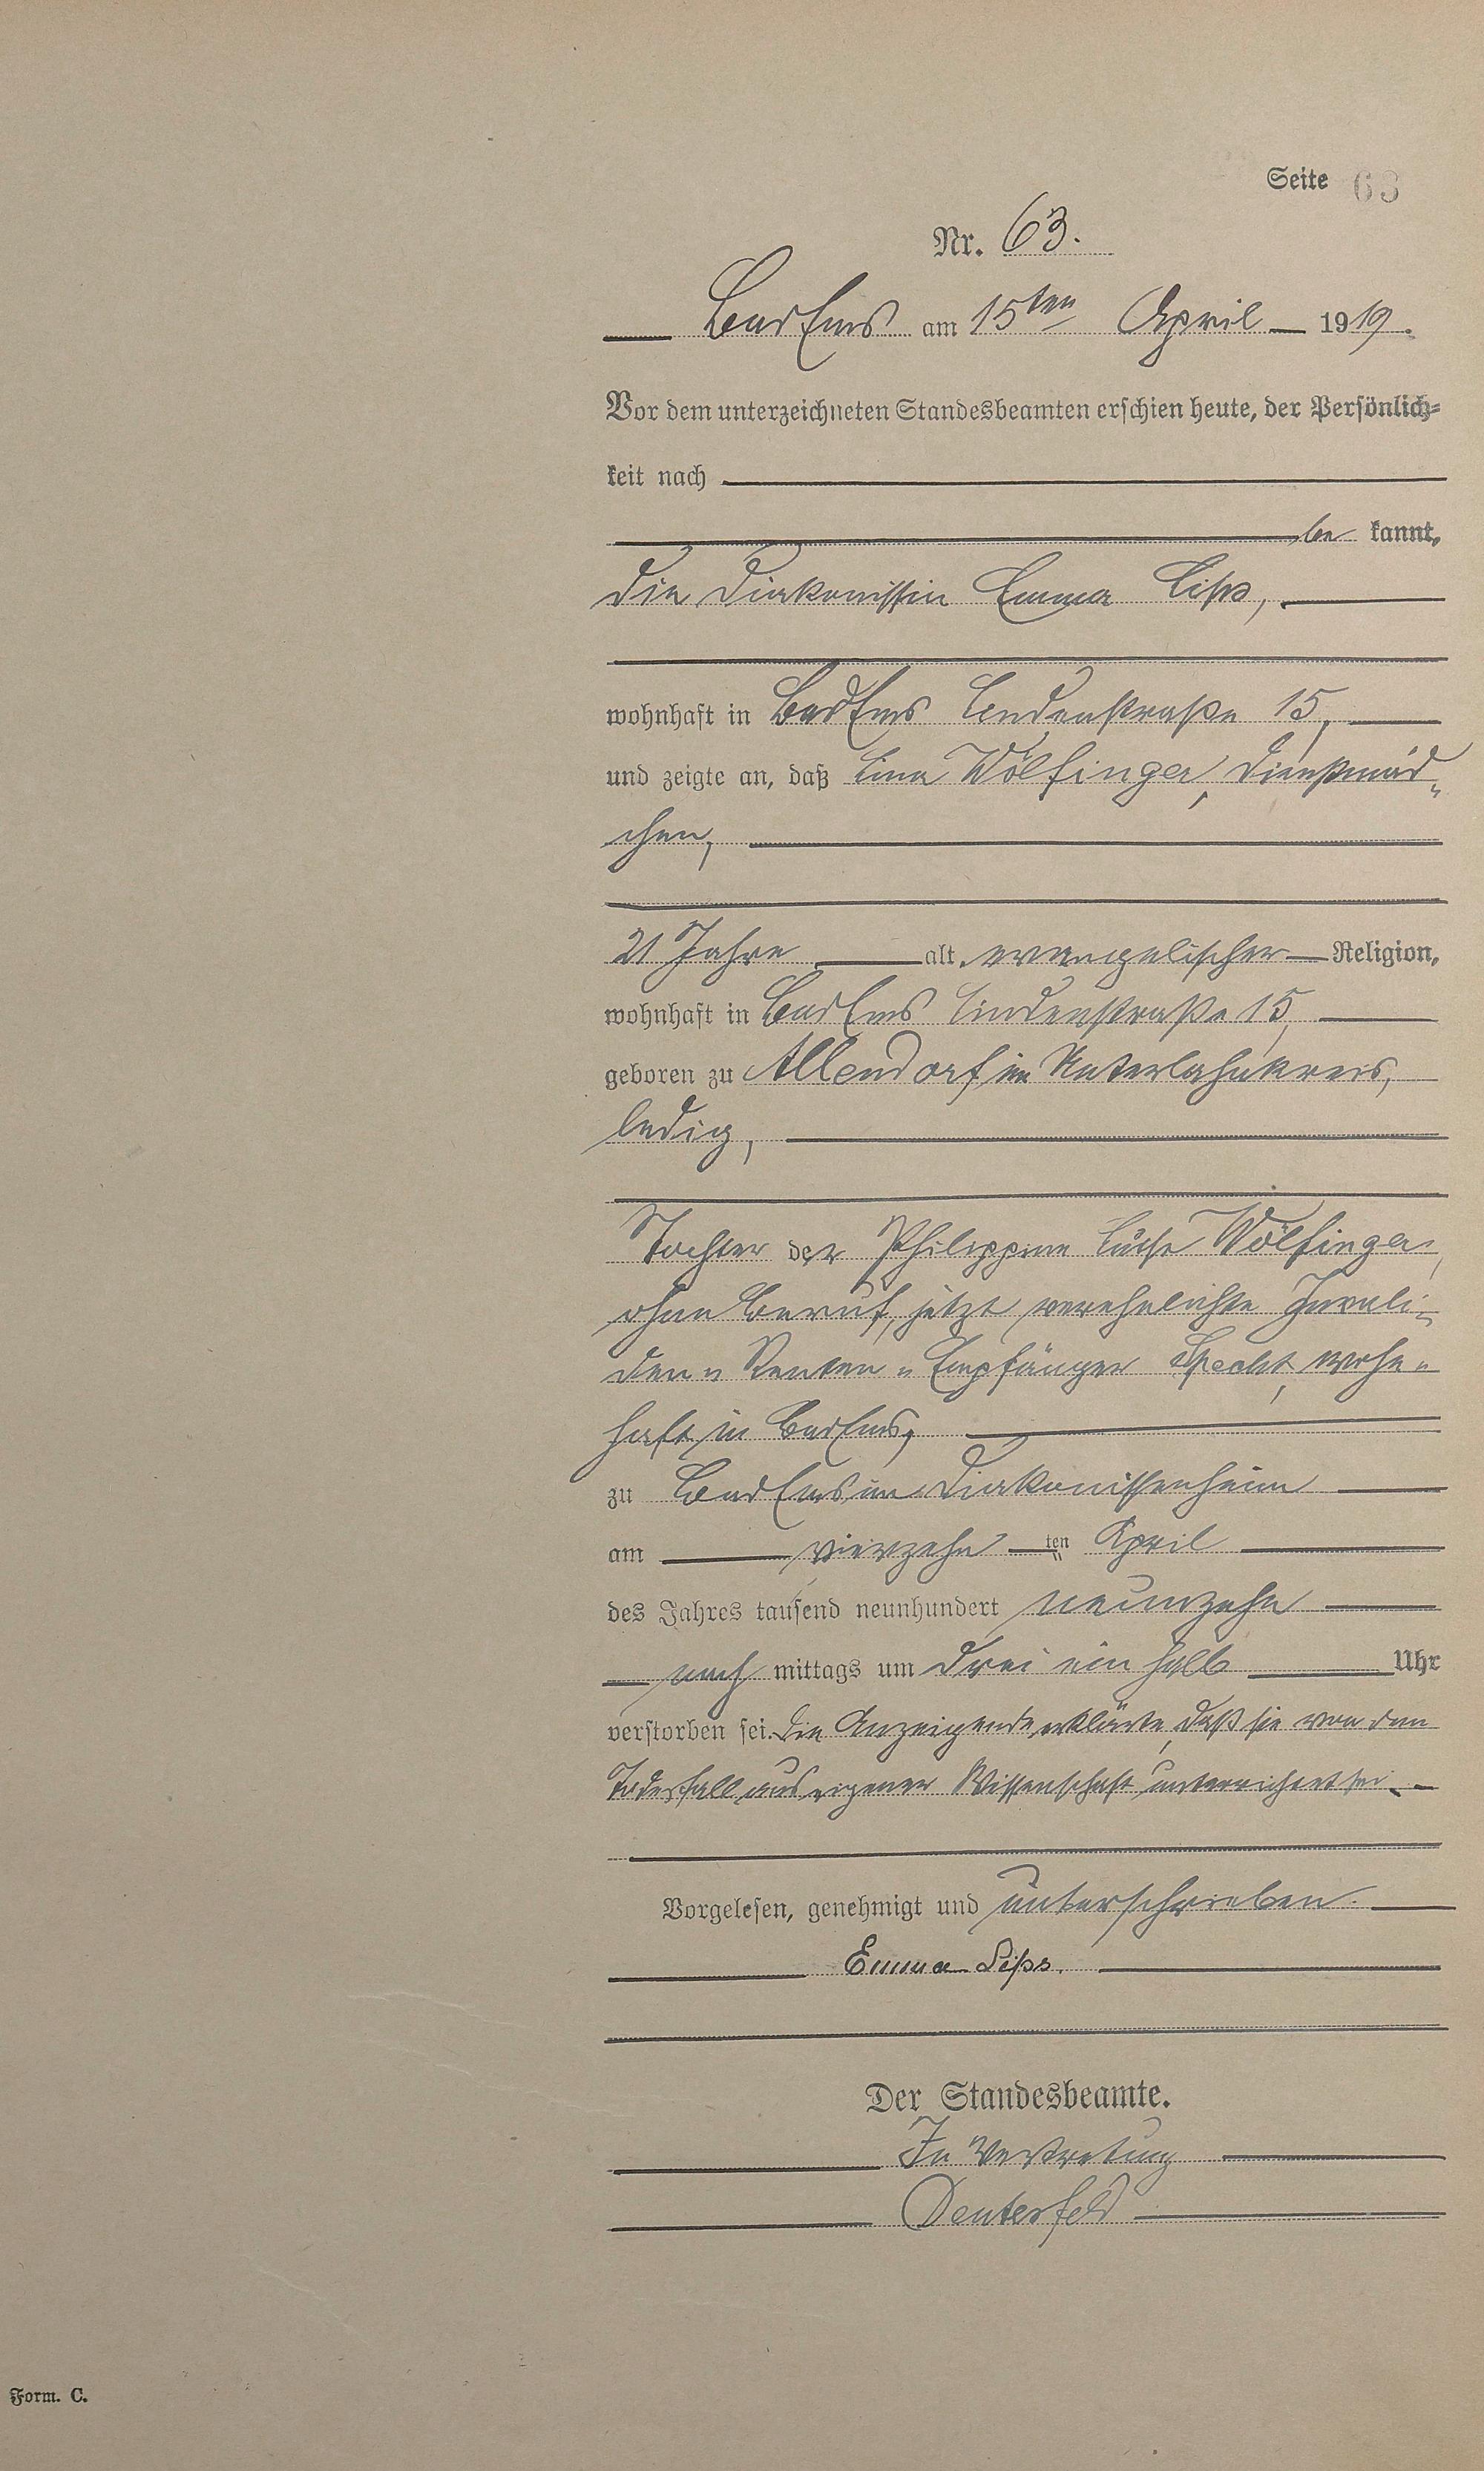 Seite 63
Nr. 63.
Bad Ems am 15ten April 1919.
Vor dem unterzeichneten Standesbeamten erschien heute, der Persönlich=
keit nach
be kannt,
die Diakonissin Emma Lips,
wohnhaft in Bad Ems Lindenstraße 15,
und zeigte an, daß Lina Wölfinger, Dienstmäd-
chen,
21 Jahre alt, evangelischer Religion,
wohnhaft in Bad Ems Lindenstraße 15,
geboren zu Allendorf im Unterlahnkreis,
ledig,
Tochter der Philippine Luise Wölfinger,
ohne Beruf, jetzt verehelichte Invali-
den-Renten-Empfänger Specht, wohn-
haft in Bad Ems,
zu Bad Ems im Diakonissenheim
am vierzehn ten April
des Jahres tausend neunhundert neunzehn
nach mittags um drei ein halb Uhr
verstorben sei. Die Anzeigende erklärte, daß sie von dem
Todesfall aus eigener Wissenschaft unterrichtet sei.
Vorgelesen, genehmigt und unterschrieben.
Emma Lips.
Der Standesbeamte.
In Vertretung
Form. C.